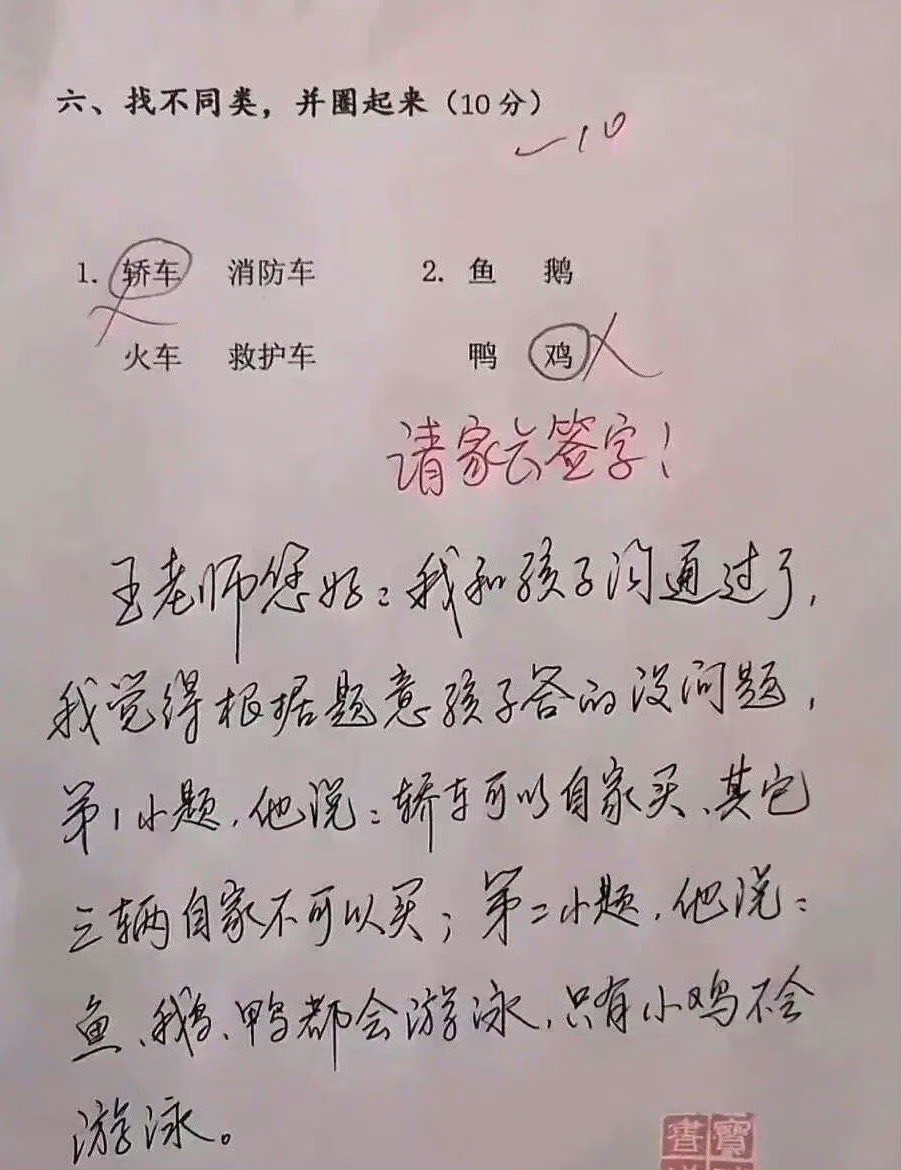 六、找不同类，并圈起来（10 分）
-10
1. 轿车 消防车 2. 鱼 鹅
火车 救护车 鸭 鸡
请家长签字！
王老师您好：我和孩子沟通过了，
我觉得根据题意孩子答的没问题，
第1小题，他说：轿车可以自家买、其它
三辆自家不可以买；第二小题，他说：
鱼、鹅、鸭都会游泳，只有小鸡不会
游泳。